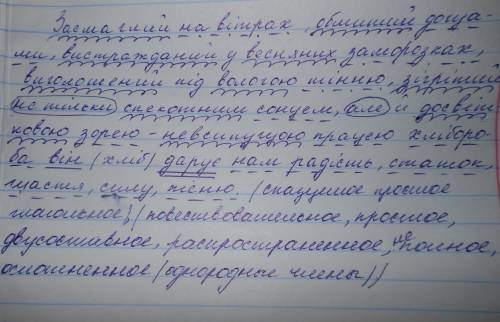 Засмаглий на вітрах, обмитий доща-
ми, вистражданий у весняних заморозках,
виголошений під вологою тінню, зігрітий
не тільки спекотним сонцем, але й досвіт
ковою зорею - невсипущою працею хліборо-
ба він (хліб) дарує нам радість, статок,
щастя, силу, пісню. (сказуемое простое
глагольное) (повествовательное, простое,
двусоставное, распространенное, неполное,
осложненное (однородные члены))